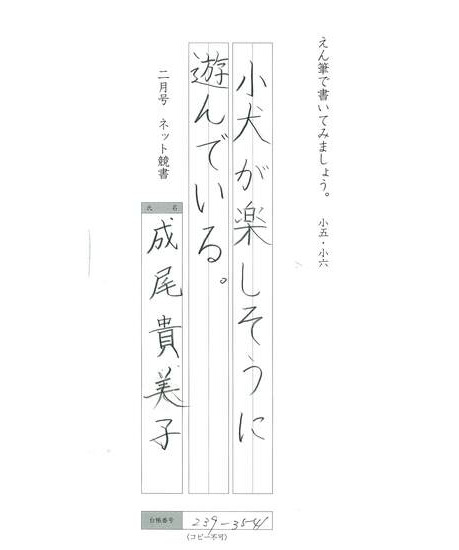 えん筆で書いてみましょう。 小五・小六
小犬が楽しそうに
遊んでいる。
二月号 ネット競書
氏名
成尾貴美子
台帳番号 239-3541
(コピー不可)